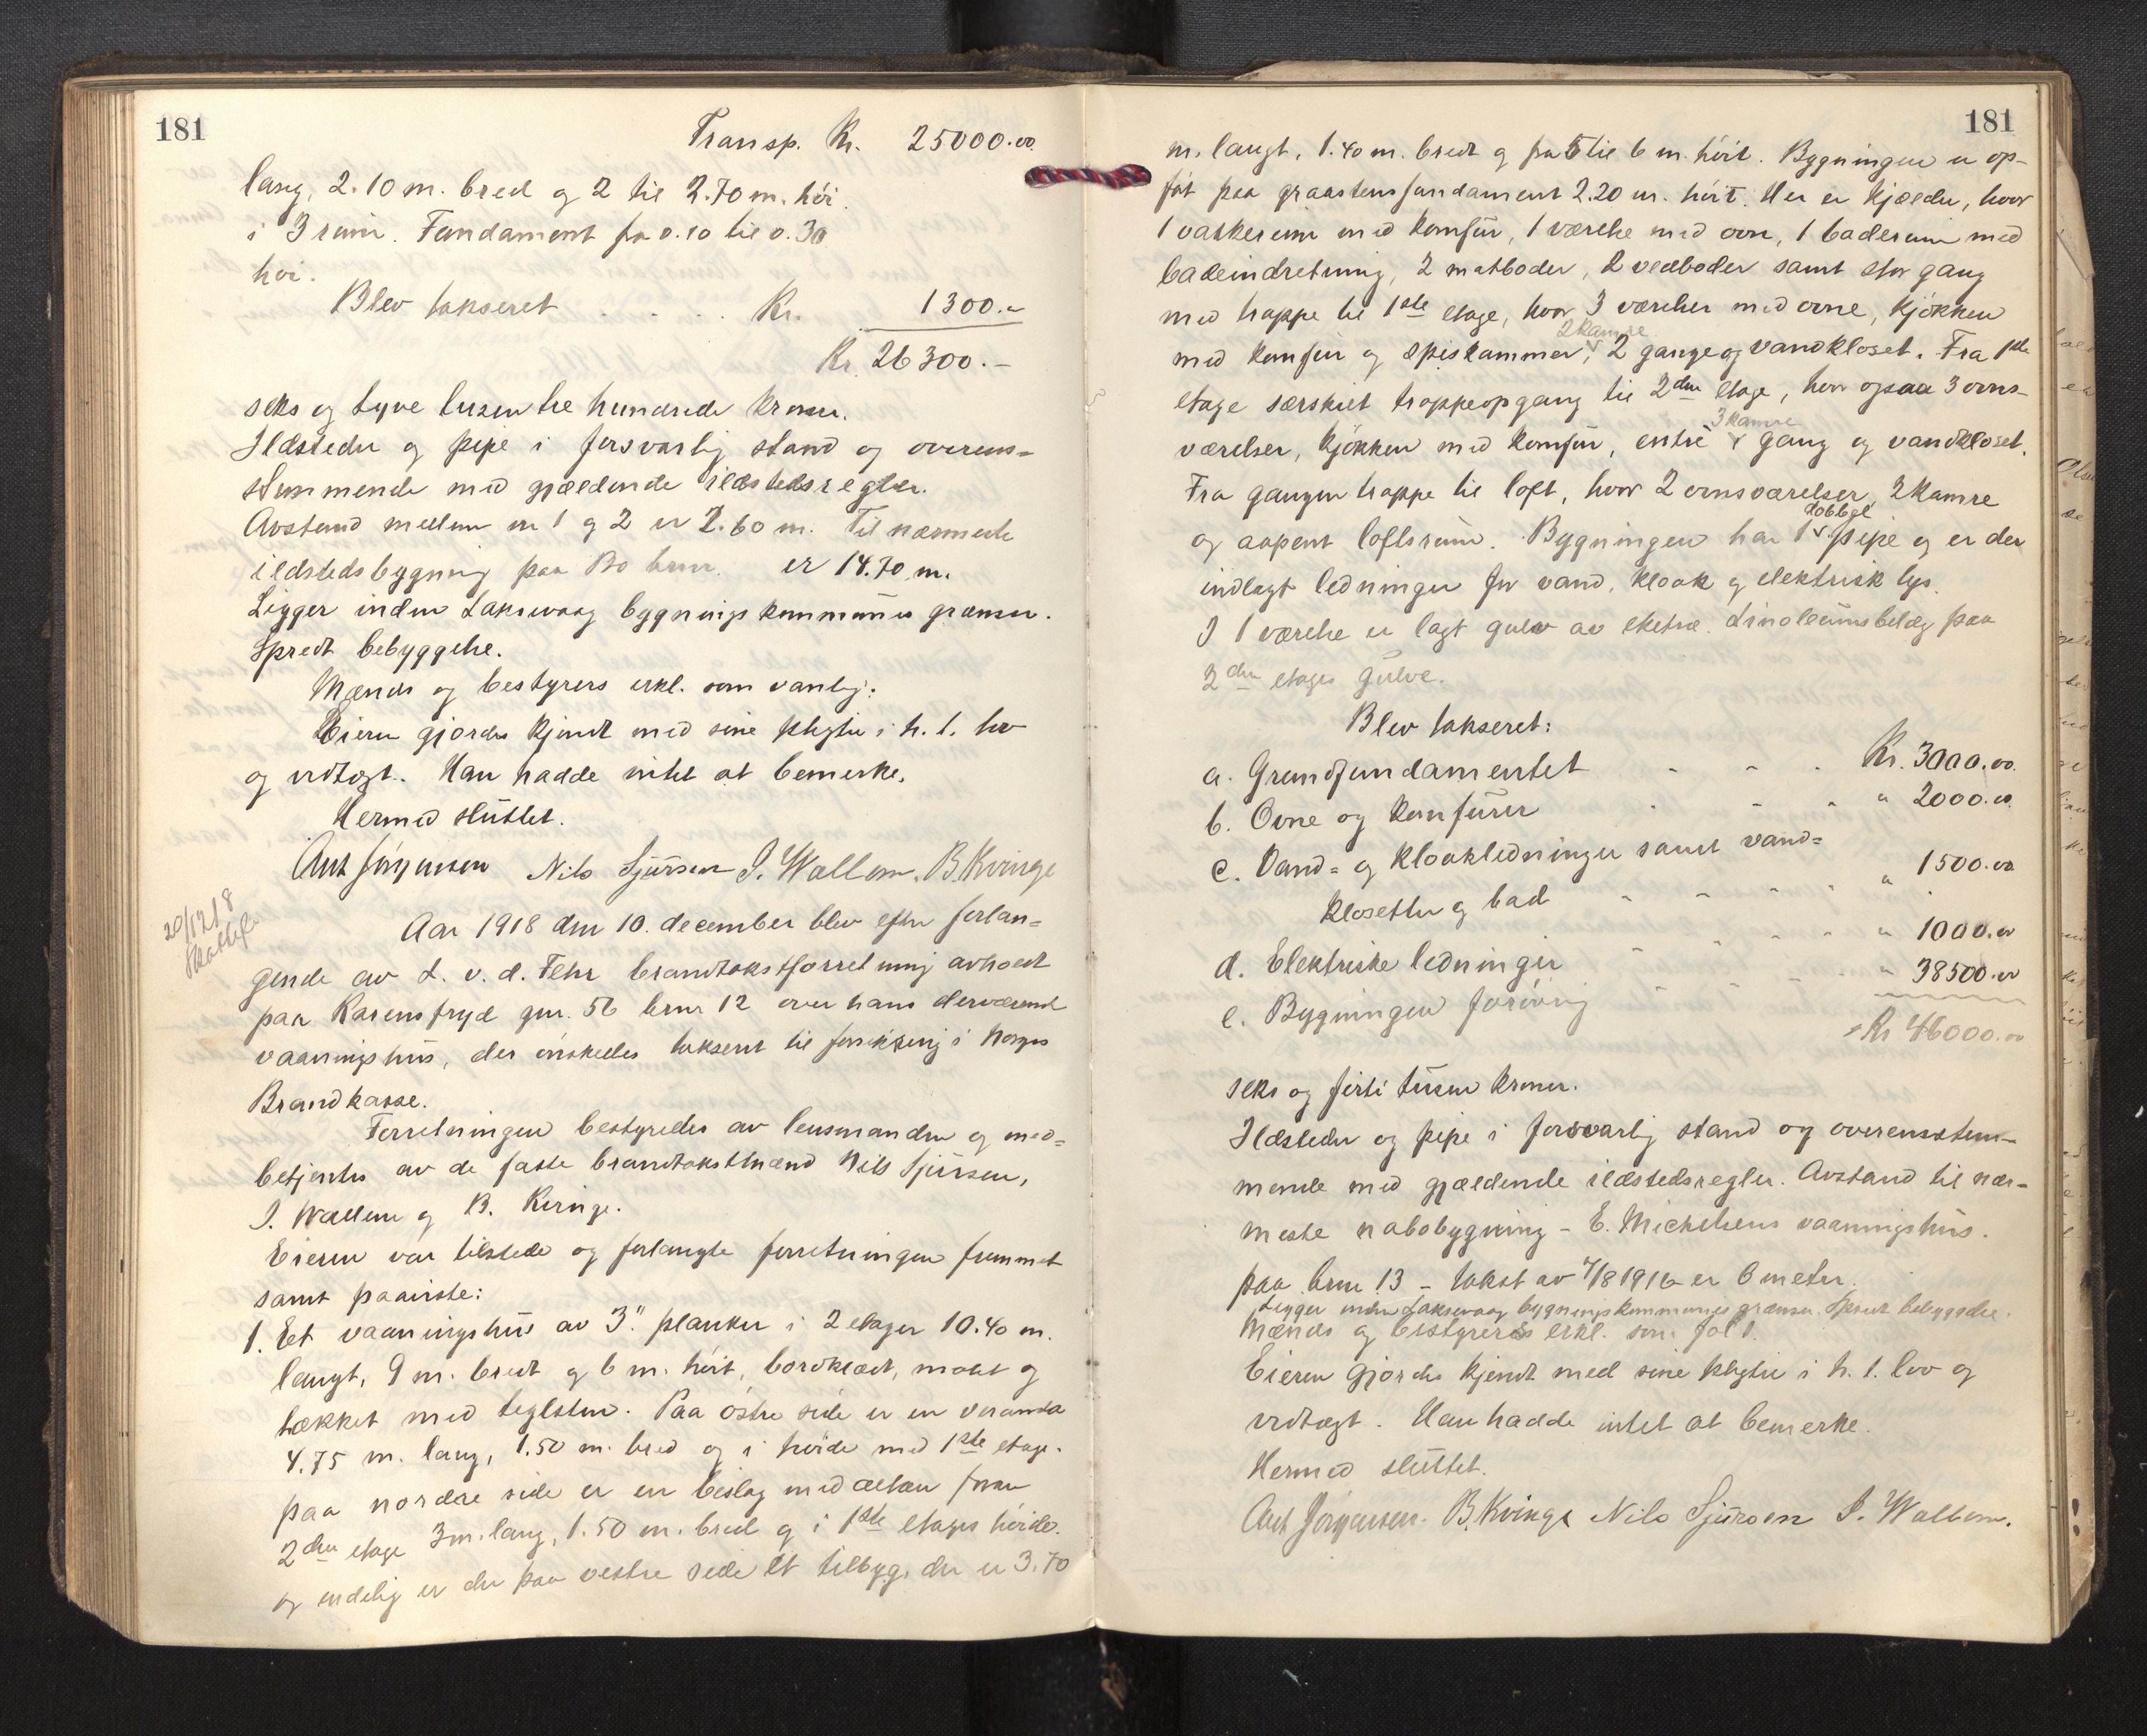 181
Transp. Kr. 25000.00
lang, 2.10 m. bred og 2 til 2.70 m. høi
i 3 rum. Fundament fra 0.10 til 0.30
høi.
Blev takseret . . . . Kr. 1300.-
Kr. 26300.-
seks og tyve tusen tre hundrede kroner.
Ildsteder og pipe i forsvarlig stand og overens-
stemmende med gjældende ildstedsregler.
Avstand mellem nr 1 og 2 er 2.60 m. Til nærmeste
ildstedsbygning paa Bo brnr. er 14.70 m.
Ligger inden Laksevaag bygningskommunes grænser.
Spredt bebyggelse.
Mænds og bestyrers erkl. som vanlig.
Eieren gjordes kjendt med sine pligter i h. t. lov
og vedtægt. Han hadde intet at bemerke.
Hermed sluttet.
Ant Jørgensen Nils Sjursen I. Wallem. B. Kvinge
20/12 18
Aar 1918 den 10. december blev efter forlan-
gende av L. v. d. Fehr brandtakstforretning avholdt
paa Karensfryd gnr. 56 brnr 12 over hans derværende
vaaningshus, der ønskedes takseret til forsikring i Norges
Brandkasse.
Forretningen bestyredes av lensmanden og med-
betjentes av de faste brandtakstmænd Nils Sjursen,
I. Wallem og B. Kvinge.
Eieren var tilstede og forlangte forretningen fremmet
samt paaviste:
1. Et vaaningshus av 3" planker i 2 etager 10.40 m.
langt, 9 m. bredt og 6 m. høit, bordklædt, malt og
tækket med teglsten. Paa østre side er en veranda
4.75 m. lang, 1.50 m. bred og i høide med 1ste etage.
paa nordre side er en beslag med altan foran
2den etage 3 m. lang, 1.50 m. bred og i 1ste etages høide.
og endelig er der paa vestre side et tilbyg, der er 3.70
181
m. langt, 1.40 m. bredt og fra 5 til 6 m. høit. Bygningen er op-
ført paa graastensfundament 2.20 m. høit. Her er kjælder, hvor
1 vaskerum med komfur, 1 værelse med ovn, 1 baderum med
badeindretning, 2 matboder, 2 vedboder samt stor gang
med trappe til 1ste etage, hvor 3 værelser med ovne, kjøkken
2 kamre
med komfur og spiskammer, 2 gange og vandkloset. Fra 1ste
etage særskilt trappeopgang til 2den etage, hvor ogsaa 3 ovns-
3 kamre
værelser, kjøkken med komfur, entré gang og vandkloset.
Fra gangen trappe til loft, hvor 2 ovnsværelser, 2 kamre
dobbel
og aapent loftsrum. Bygningen har 1 pipe og er der
indlagt ledninger for vand, kloak og elektrisk lys.
I 1 værelse er lagt gulv av eketræ. Linoleumsbelæg paa
2den etages gulve.
Blev takseret:
a. Grundfundamentet - - . Kr. 3000.00
b. Ovne og komfurer . - . " 2000.00
c. Vand- og kloakledninger samt vand-
klosetter og bad - - - . " 1500.00
d. Elektriske ledninger - - - - " 1000.00
e. Bygningen forøvrig - - - - " 38500.00
Kr 46000.00
seks og firti tusen kroner.
Ildsteder og pipe i forsvarlig stand og overensstem-
mende med gjældende ildstedsregler. Avstand til nær-
meste nabobygning - E. Michelsens vaaningshus.
paa brnr 13 - takst av 7/8 1916 er 6 meter.
Ligger inden Laksevaag bygningskommunes grænser. Spredt bebyggelse.
Mænds og bestyrers erkl. som fol 1.
Eieren gjordes kjendt med sine pligter i h. t. lov og
vedtægt. Han hadde intet at bemerke.
Hermed sluttet.
Ant Jørgensen. B. Kvinge Nils Sjursen I. Wallem.